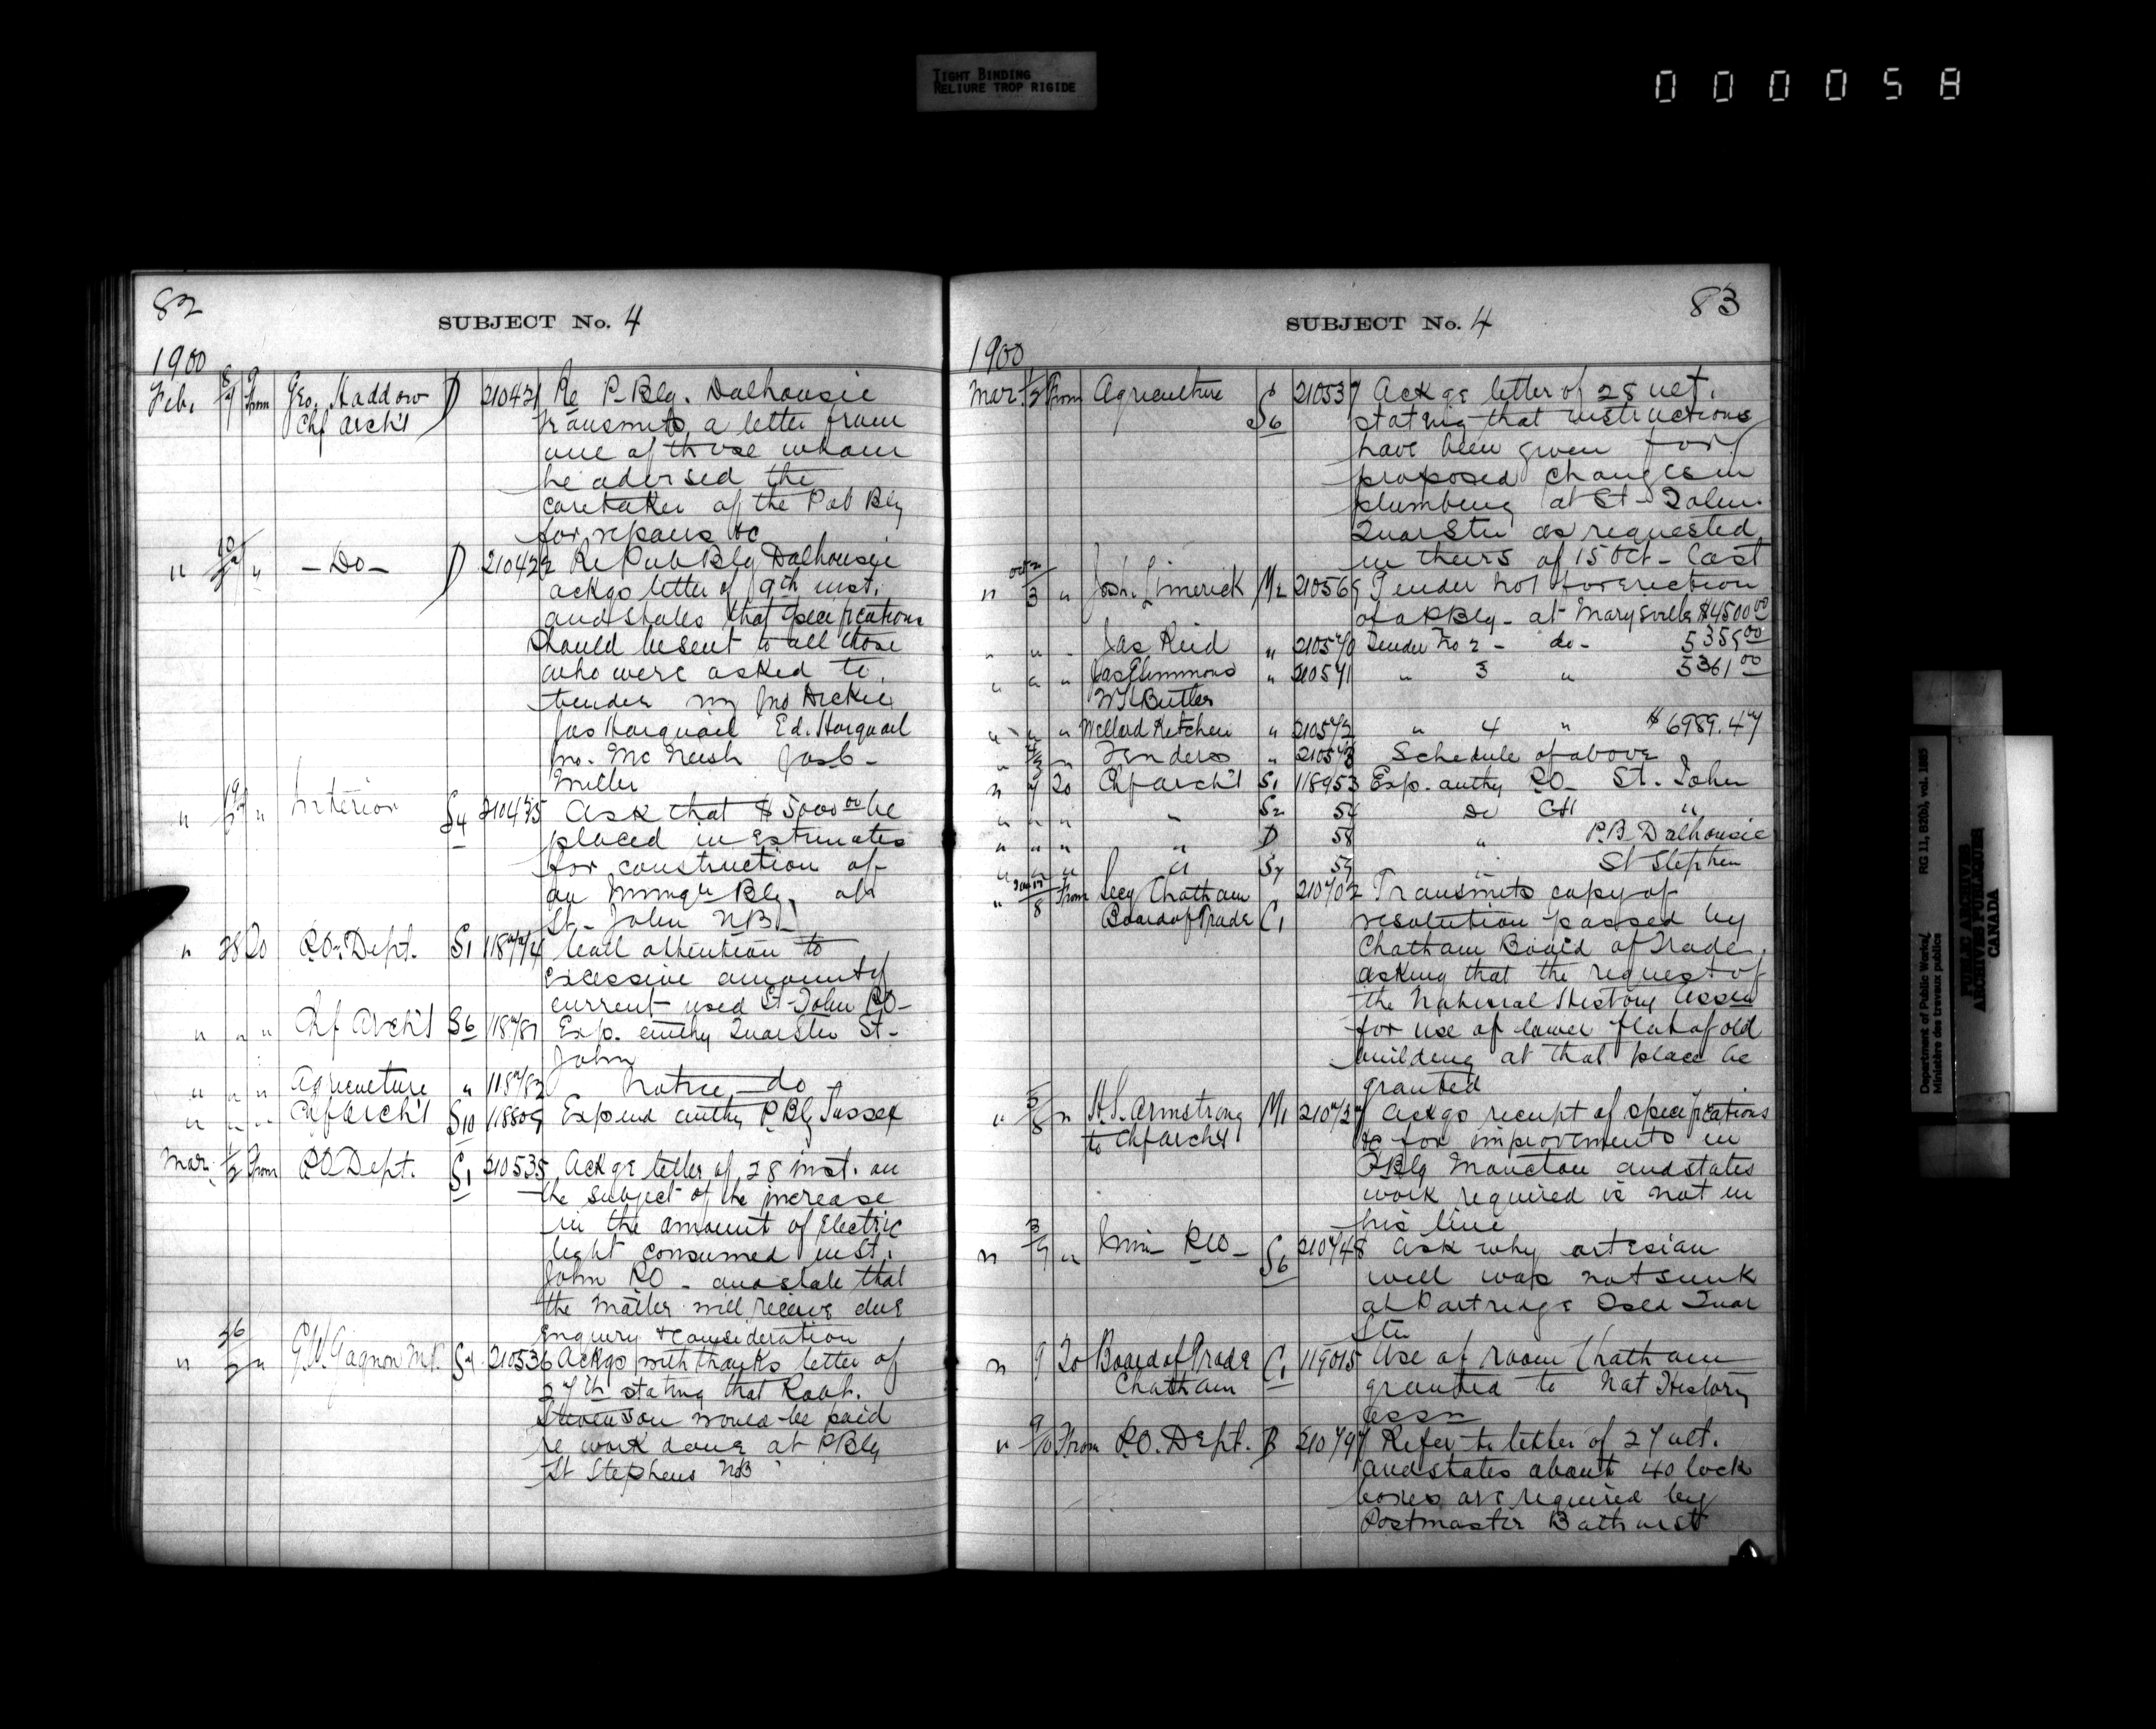 TIGHT BINDING
RELIURE TROP RIGIDE
000058
82
SUBJECT No. 4
1900
Feb. From Geo. Haddow D 210421 Re P. Blg. Dalhousie
Chf Arch't transmits a letter from
one of those whom
he advised the
caretaker of the Pub Blg
for repairs &c
" " - Do - D 210422 Re Pub Blg Dalhousie
ackgs letter of 9th inst.
and states that specifications
should be sent to all those
who were asked to
tender Jno Dickie
Jas Harquail Ed. Harquail
Jno. McNeish Jas C-
Miller
" " Interior S4 210475 Ask that $5000 00 be
placed in Estimates
for construction of
an Immgn Blg at
St. John NB
" 28 To P.O. Dept. S1 118774 Call attention to
excessive amount of
current used St-John P.O-
" " " Chf Arch't S6 118781 Exp. authy Quar Stn St-
John
" " " Agriculture " 118782 Notice do
" " " Chf Arch't S10 118809 Expend authy P. Blg Sussex
Mar. 1/2 From P.O Dept. S1 210535 Ackgs letter of 28 inst. on
the subject of the increase
in the amount of Electric
light consumed in St.
John P.O - and state that
the matter will receive due
enquiry & consideration
" " G.W. Gagnon M.P. S7 210536 Ackgs with thanks letter of
27th stating that Robt.
Stevenson would be paid
re work done at P Blg
St Stephens NB
83
SUBJECT No. 4
1900
Mar. 1/2 From Agriculture S6 210537 Ackgs letter of 28 ult.
stating that instructions
have been given for
proposed changes in
plumbing at St-John
Quar Stn as requested
in theirs of 15 Oct - last
" 3 " Josh. Limerick M2 210569 Tender No 1 for erection
of a P Blg - at Marysville $4500 00
" " " Jas Reid " 210570 Tender No 2 - do - 5355 00
" " " Jas E Simmons " 210571 " 3 " 5361 00
Butler
" " " Willard Kitchen " 210572 " 4 " $6989.47
" " Tenders " 210573 Schedule of above
" 7 To Chf Arch't S1 118953 Exp. authy P.O- St. John
" " " " S2 54 do CH "
" " " " D 58 " P.B. Dalhousie
" " " " S7 59 " St Stephen
" 8 From Secy Chatham 210702 Transmits copy of
Board of Trade C1 resolution passed by
Chatham Board of Trade
asking that the request of
the Natural History Assn
for use of lower flat of old
building at that place be
granted
" 5/8 " H.S. Armstrong M1 210737 Ackgs receipt of specifications
to Chf Arch't &c for improvements in
P Blg Moncton and states
work required is not in
his line
" 3/9 " S6 210748 Ask why artesian
well was not sunk
at Partridge Isld Quar
Stn
" 9 To Board of Trade C1 119015 Use of room Chatham
Chatham granted to Nat History
Assn
" 9/10 From P.O. Dept. B 210797 Refer to letter of 27 ult.
and states about 40 lock
boxes are required by
Postmaster Bathurst
Department of Public Works/ RG 11, B2(b), vol. 1885
Ministère des travaux publics
PUBLIC ARCHIVES
ARCHIVES PUBLIQUES
CANADA